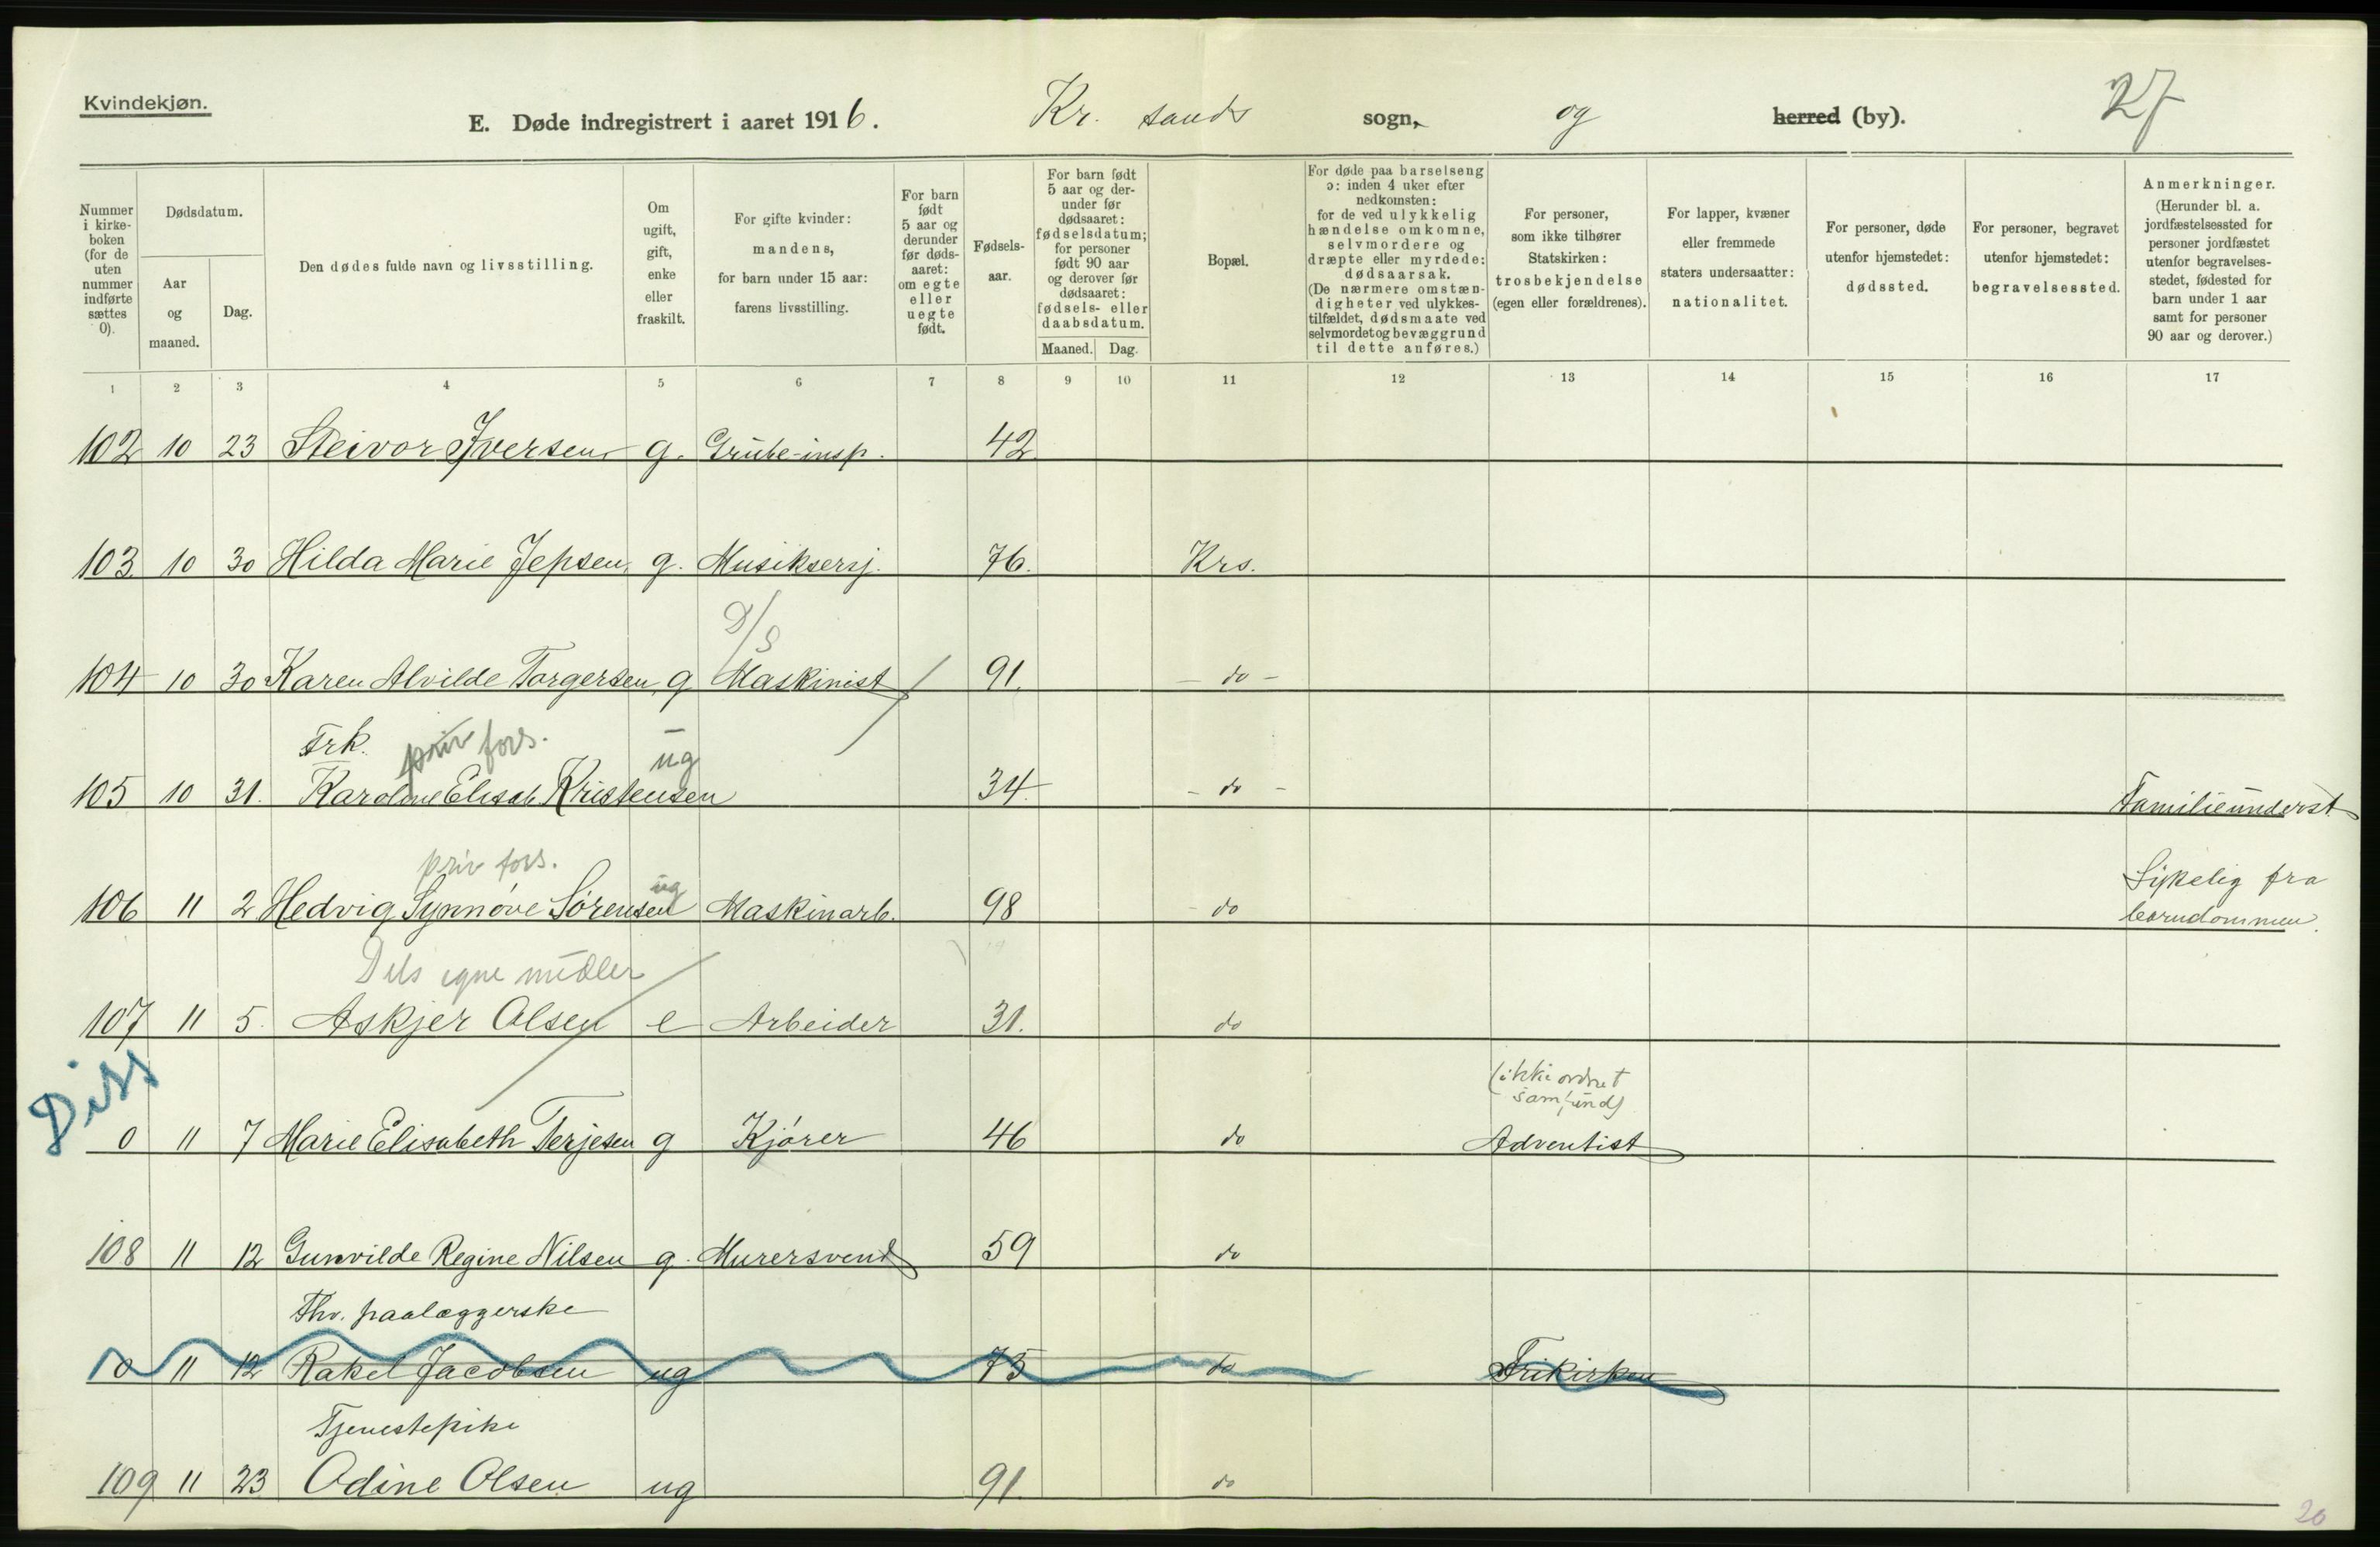 Kvindekjøn.
E. Døde indregistrert i aaret 1916. Kr. sands sogn, og herred (by). 27
Nummer i kirke-boken (for de uten nummer indførte sættes 0).
Dødsdatum.
Aar og maaned.
Dag.
Den dødes fulde navn og livsstilling.
Om ugift, gift, enke eller fraskilt.
For gifte kvinder: mandens, for barn under 15 aar: farens livsstilling.
For barn født 5 aar og derunder før døds-aaret: om egte eller uegte født.
Fødsels-aar.
For barn født 5 aar og der-under før dødsaaret: fødselsdatum; for personer født 90 aar og derover før dødsaaret: fødsels- eller daabsdatum.
Maaned. Dag.
Bopæl.
For døde paa barselseng ɔ: inden 4 uker efter nedkomsten: for de ved ulykkelig hændelse omkomne, selvmordere og dræpte eller myrdede: dødsaarsak. (De nærmere omstæn-digheter ved ulykkes-tilfældet, dødsmaate ved selvmordet og bevæggrund til dette anføres.)
For personer, som ikke tilhører Statskirken: trosbekjendelse (egen eller forældrenes).
For lapper, kvæner eller fremmede staters undersaatter: nationalitet.
For personer, døde utenfor hjemstedet: dødssted.
For personer, begravet utenfor hjemstedet: begravelsessted.
Anmerkninger. (Herunder bl. a. jordfæstelsessted for personer jordfæstet utenfor begravelses-stedet, fødested for barn under 1 aar samt for personer 90 aar og derover.)
1 2 3 4 5 6 7 8 9 10 11 12 13 14 15 16 17
102 10 23 Steivor Iversen g. Grube-insp. 42
103. 10 30 Hilda Marie Jepsen g. Musikersj. 76. Krs.
D/S
104 10 30 Karen Alvilde Torgersen g Maskinist 91. - do -
Frk. priv fors. ug
105 10 31. Karoline Elisab. Kristensen 34. - do - Familieunderst.
priv fors. ug Sykelig fra
106 11 2 Hedvig Synnøve Sørensen Maskinarb. 98 - do barndommen.
Dels egne midler
107 11 5. Askjer Olsen e Arbeider 31. do
Diss
(ikke ordnet
samfund)
0 11 7 Marie Elisabeth Terjesen g Kjører 46 do Adventist
108 11 12 Gunvilde Regine Nilsen g. Murersvend 59 do
Fhv. paalæggerske
0 11 12 Rakel Jacobsen ug 75 do Frikirken
Tjenestepike
109 11 23 Odine Olsen ug 91. do
20